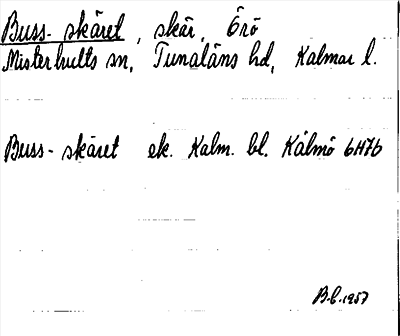 Buss-skäret, skär, Örö
Misterhults sn, Tunaläns hd, Kalmar l.
Buss-skäret ek. Kalm. bl. Kålmö 6H7b
B.l. 1957